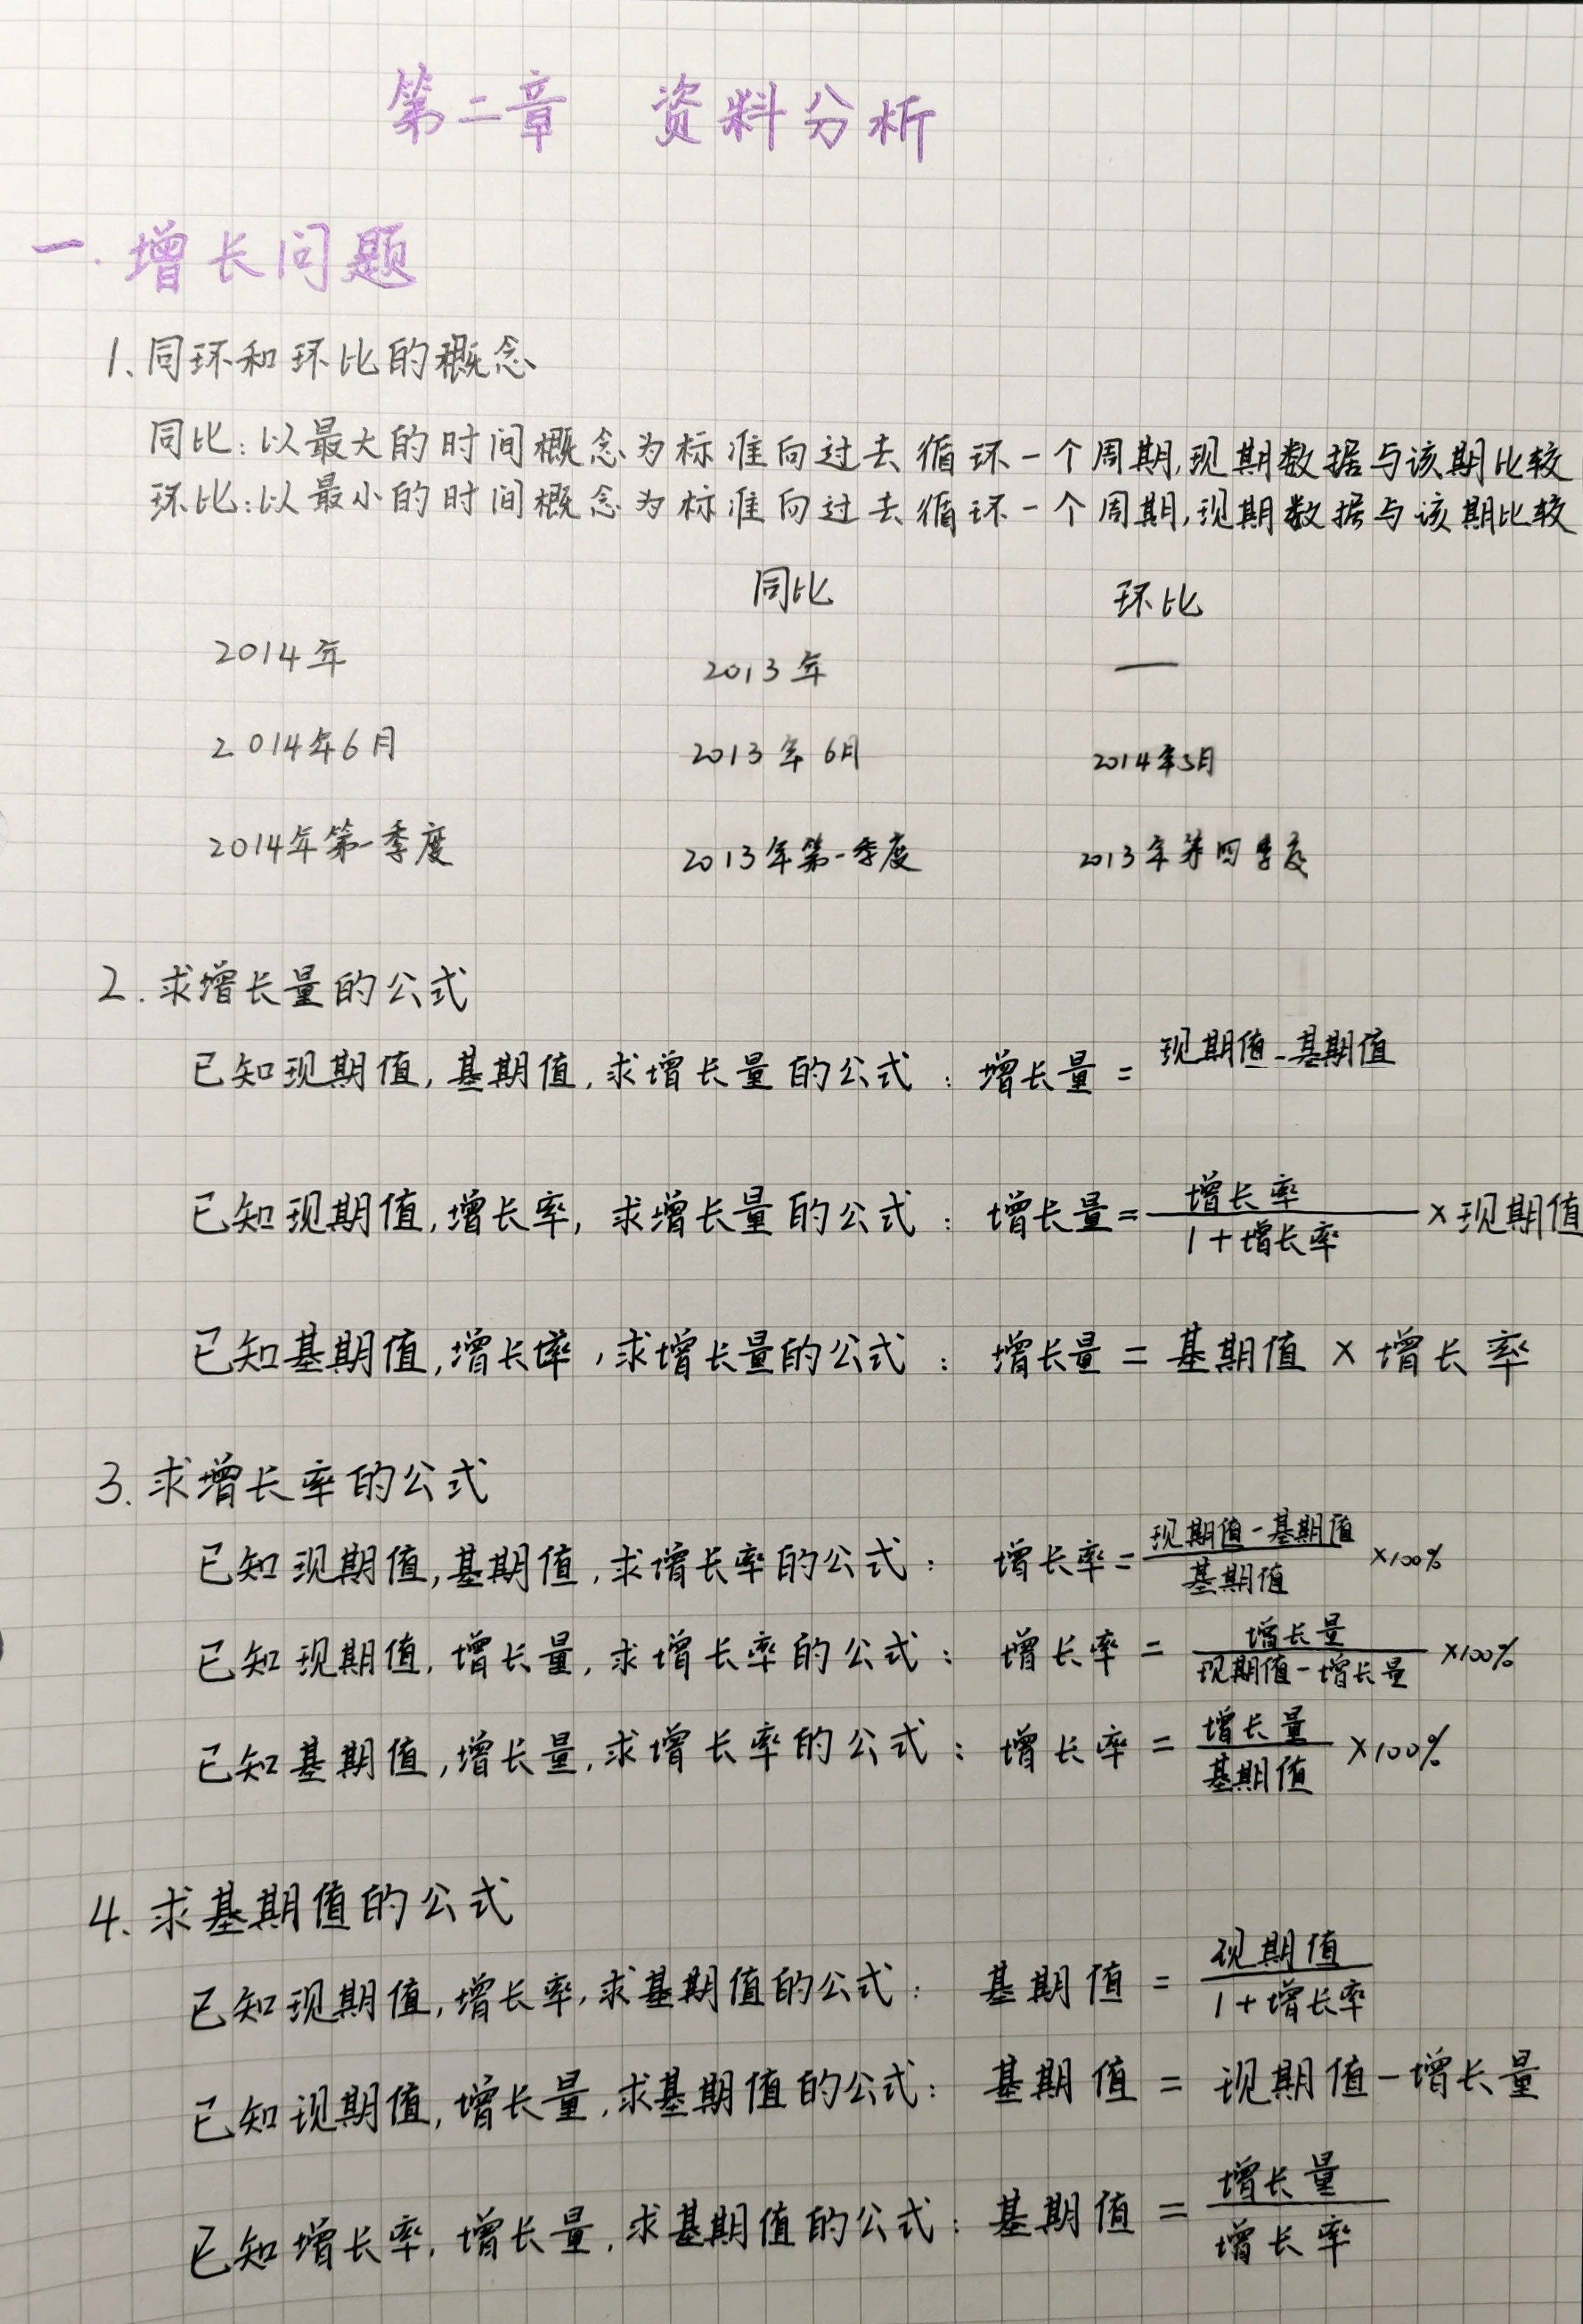 第二章 资料分析
一.增长问题
1、同环和环比的概念
同比:以最大的时间概念为标准向过去循环一个周期,现期数据与该期比较
环比:以最小的时间概念为标准向过去循环一个周期,现期数据与该期比较
同比 环比
2014年 2013年 —
2014年6月 2013年6月 2014年5月
2014年第一季度 2013年第一季度 2013年第四季度
2.求增长量的公式
已知现期值,基期值,求增长量的公式: 增长量=现期值-基期值
已知现期值,增长率,求增长量的公式: 增长量=增长率/1+增长率×现期值
已知基期值,增长率,求增长量的公式: 增长量=基期值×增长率
3.求增长率的公式
已知现期值,基期值,求增长率的公式: 增长率=现期值-基期值/基期值×100%
已知现期值,增长量,求增长率的公式: 增长率=增长量/现期值-增长量×100%
已知基期值,增长量,求增长率的公式: 增长率=增长量/基期值×100%
4、求基期值的公式
已知现期值,增长率,求基期值的公式: 基期值=现期值/1+增长率
已知现期值,增长量,求基期值的公式: 基期值=现期值-增长量
已知增长率,增长量,求基期值的公式: 基期值=增长量/增长率